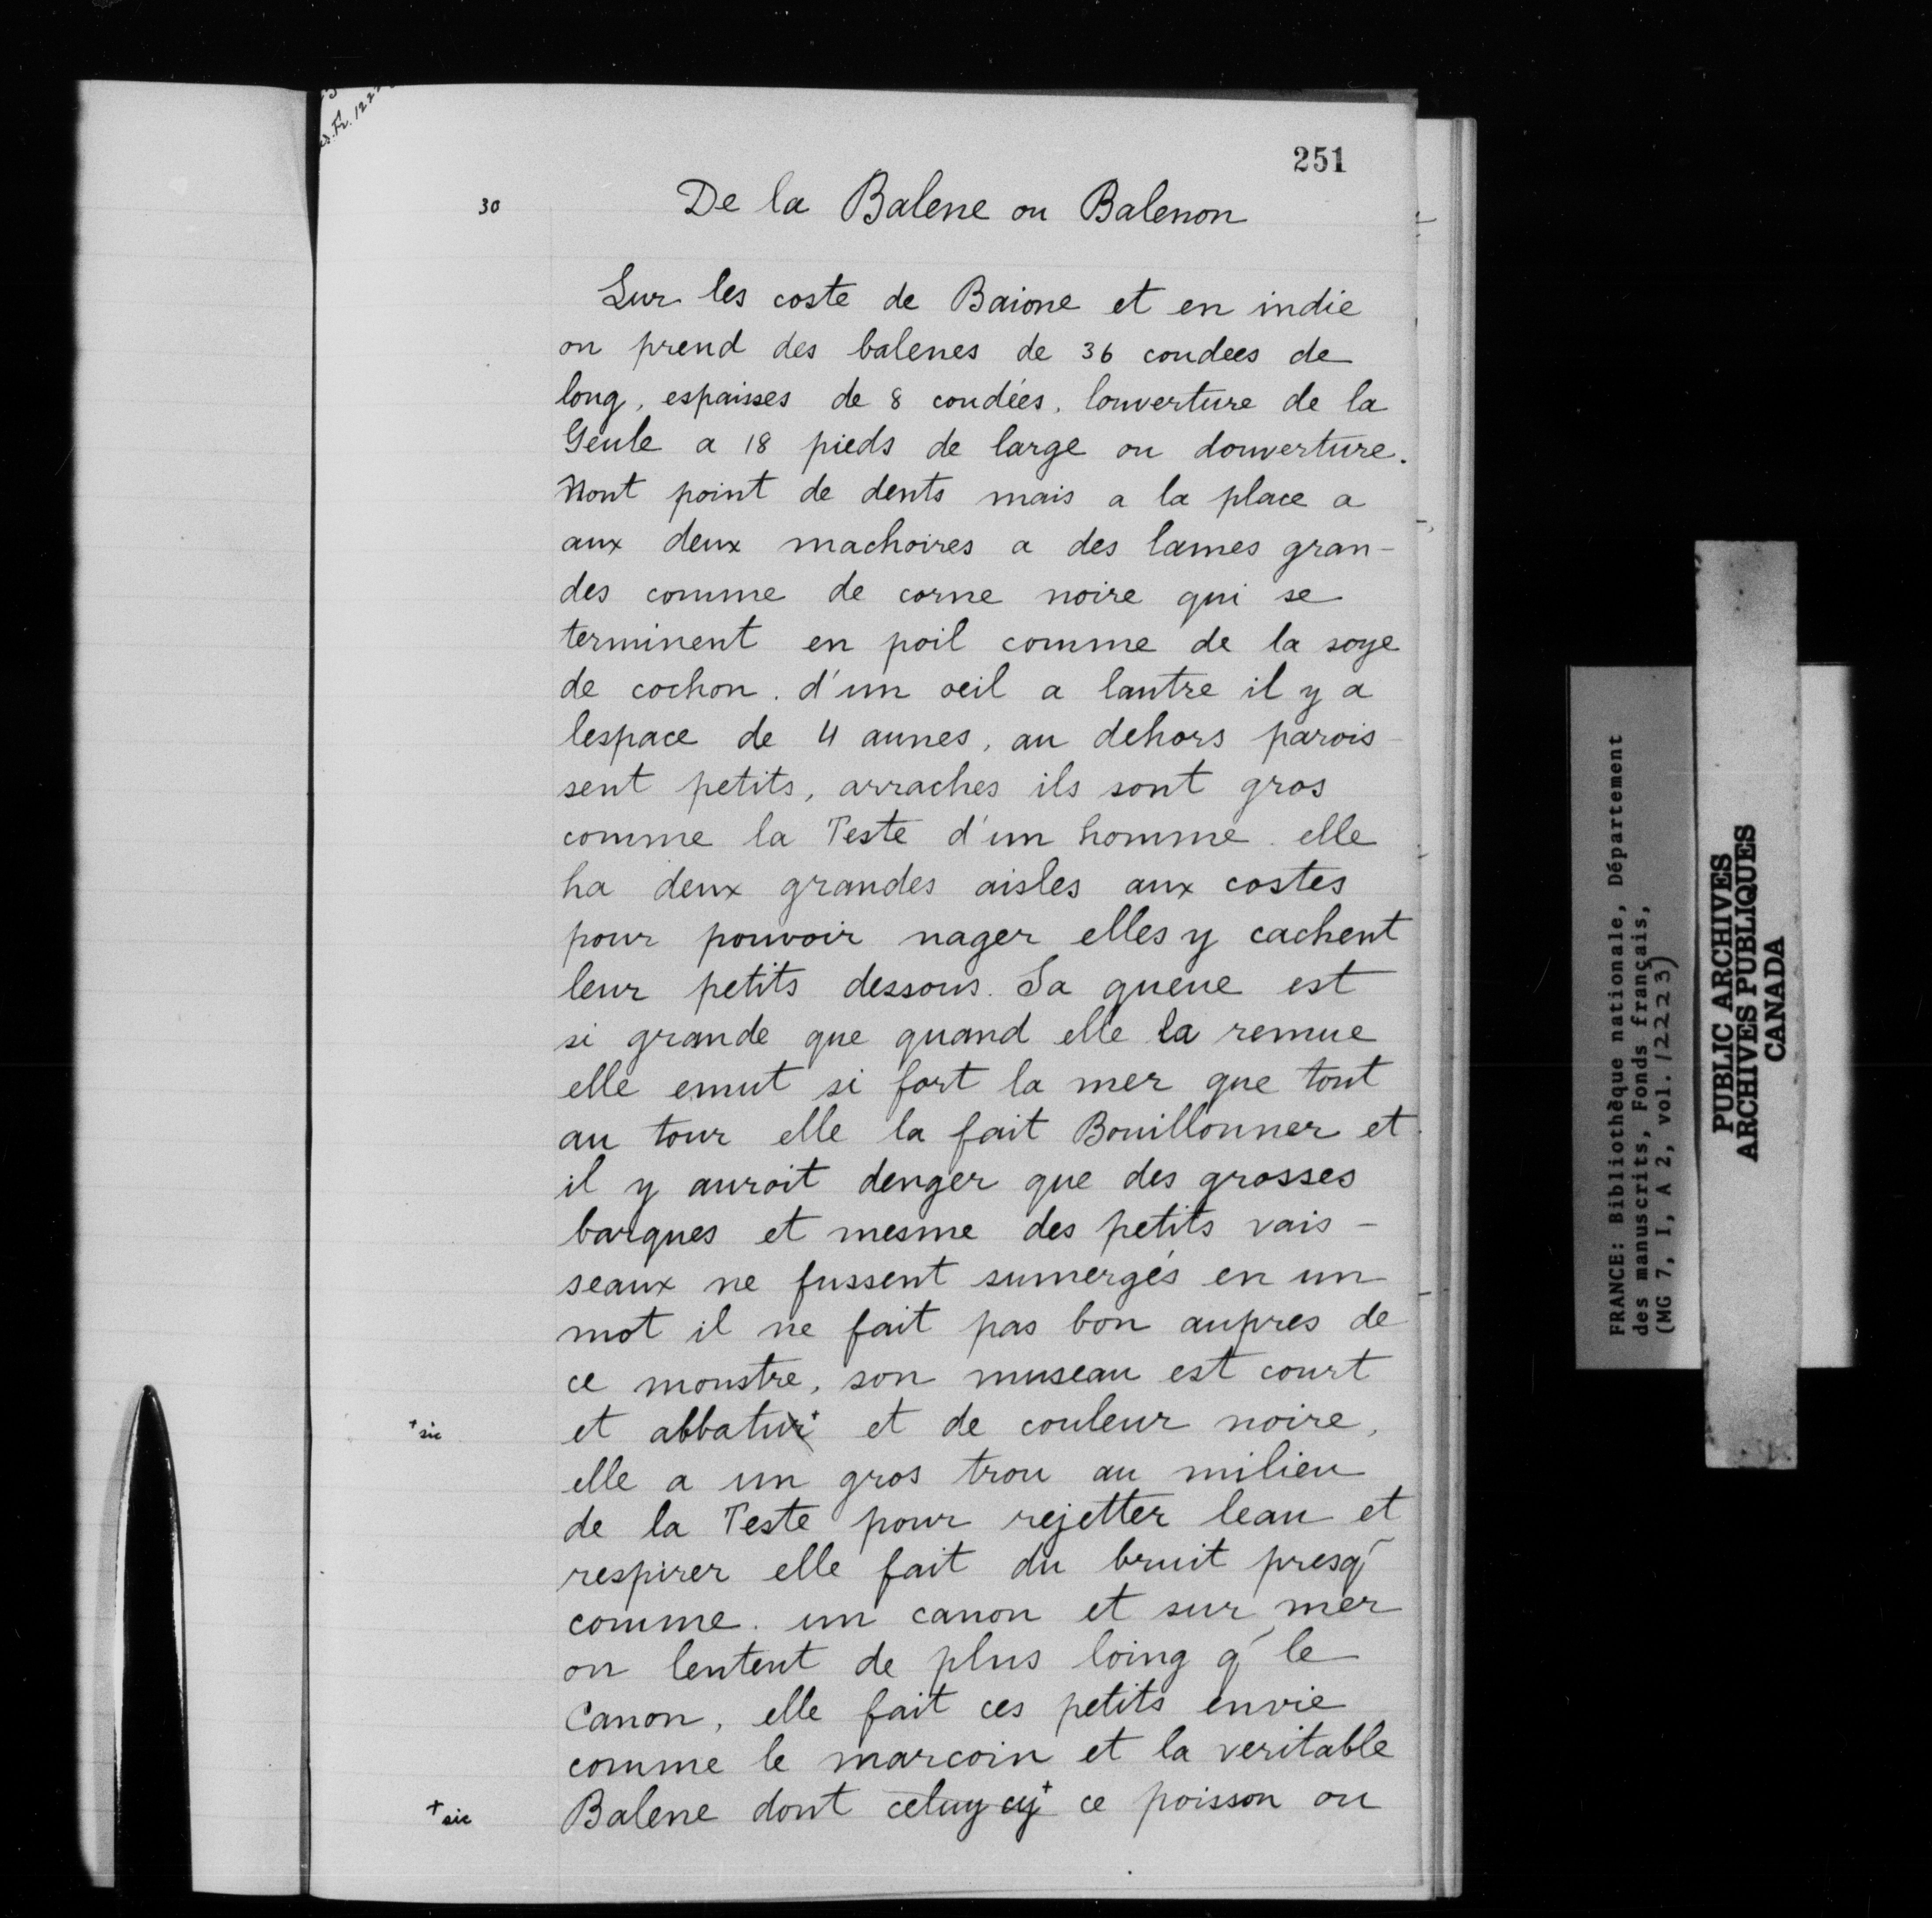 s. Fr. 122
251
30
De la Balene ou Balenon
Sur les coste de Baione et en indie
on prend des balenes de 36 coudees de
long, espaisses de 8 coudées. louverture de la
Geule a 18 pieds de large ou douverture.
Nont point de dents mais a la place a
aux deux machoires a des lames gran-
des comme de corne noire qui se
terminent en poil comme de la soye
de cochon. d'un oeil a lautre il y a
lespace de 4 aunes, au dehors parois-
sent petits, arraches ils sont gros
comme la Teste d'un homme. elle
ha deux grandes aisles aux costes
pour pouvoir nager elles y cachent
leur petits dessous. Sa queue est
si grande que quand elle la remue
elle emut si fort la mer que tout
au tour elle la fait Bouillonner et
il y auroit denger que des grosses
barques et mesme des petits vais-
seaux ne fussent sumergés en un
mot il ne fait pas bon aupres de
ce monstre, son museau est court
+ sic
et abbatui + et de couleur noire,
elle a un gros trou au milieu
de la Teste pour rejetter leau et
respirer elle fait du bruit presq́
comme. un canon et sur mer
on lentent de plus loing q́ le
Canon, elle fait ces petits envie
comme le marcoin et la veritable
+ sic
Balene dont celuy cy + ce poisson ou
FRANCE: Bibliothèque nationale, Département
des manuscrits, Fonds français,
(MG 7, I, A 2, vol. 12223)
PUBLIC ARCHIVES
ARCHIVES PUBLIQUES
CANADA